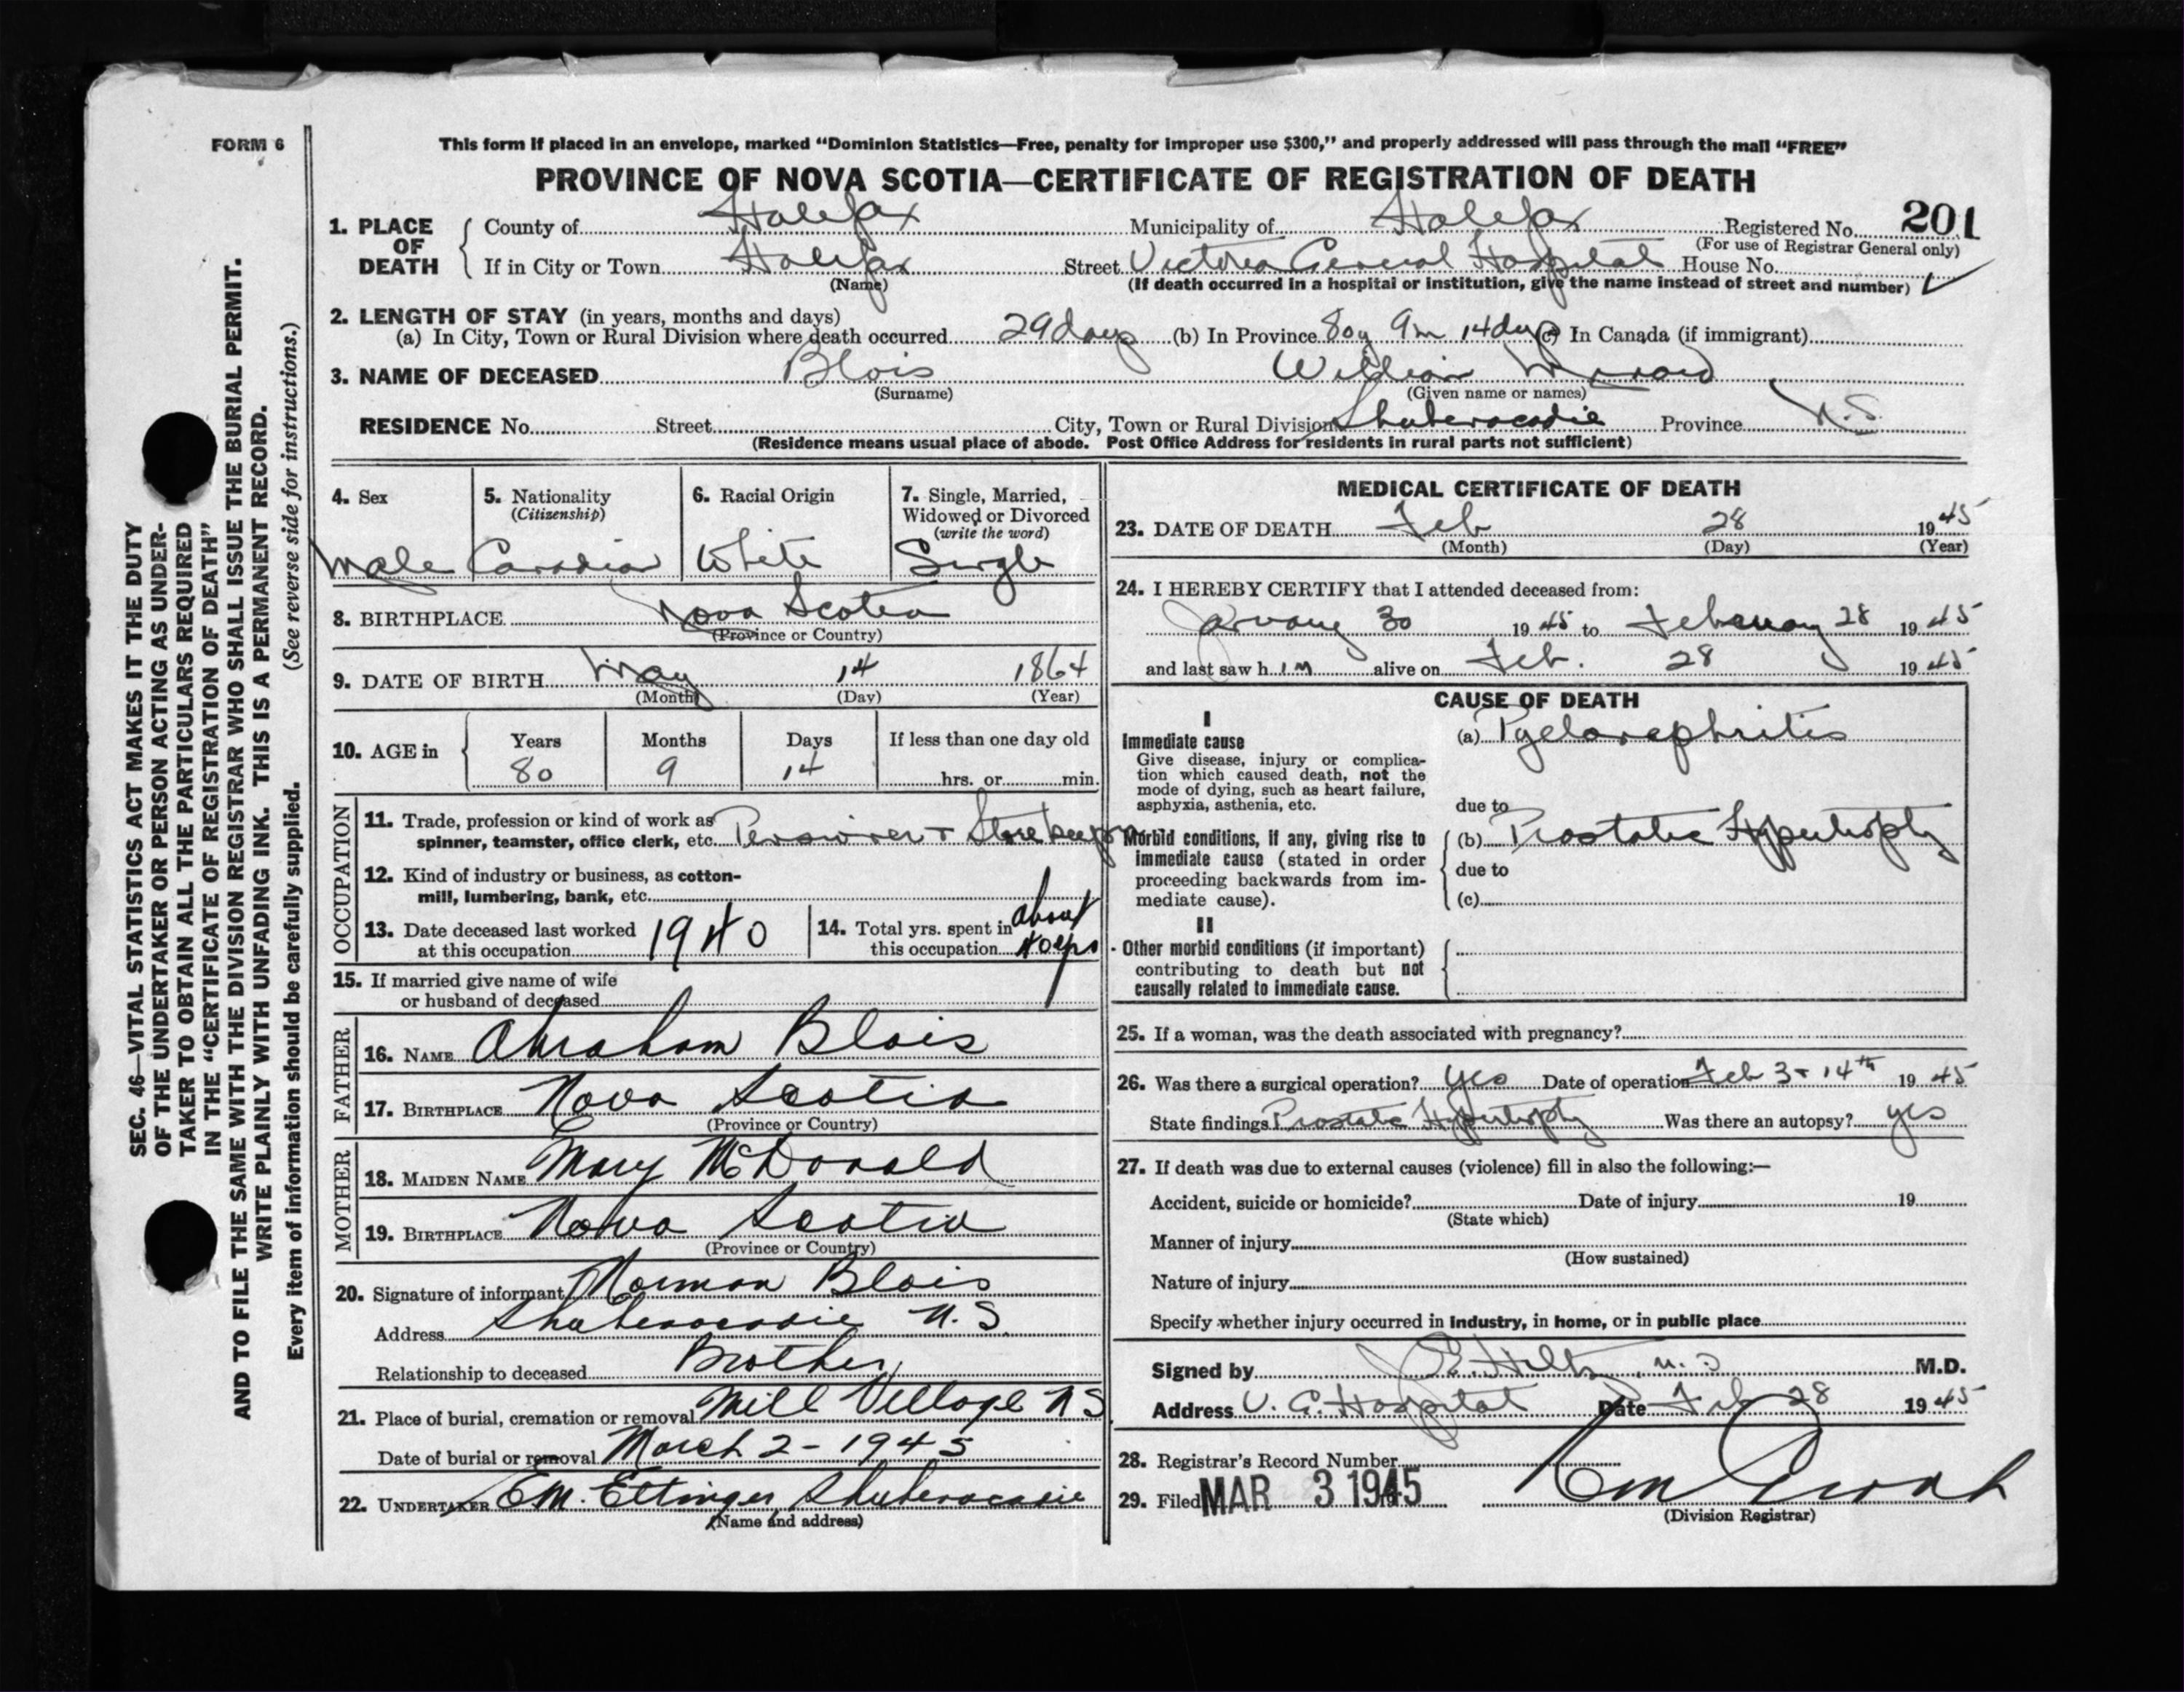 FORM 6
This form if placed in an envelope, marked “Dominion Statistics—Free, penalty for improper use $300,” and properly addressed will pass through the mail “FREE”
PROVINCE OF NOVA SCOTIA—CERTIFICATE OF REGISTRATION OF DEATH
1. PLACE OF DEATH County of Halifax Municipality of Halifax Registered No. 201
(For use of Registrar General only)
If in City or Town Halifax Street Victoria General Hospital House No.
(Name) (If death occurred in a hospital or institution, give the name instead of street and number)
2. LENGTH OF STAY (in years, months and days)
(a) In City, Town or Rural Division where death occurred 29 days (b) In Province 80y 9m 14 days (c) In Canada (if immigrant)
3. NAME OF DECEASED Blois William
(Surname) (Given name or names)
RESIDENCE No. Street City, Town or Rural Division Shubenacadie Province N.S.
(Residence means usual place of abode. Post Office Address for residents in rural parts not sufficient)
4. Sex 5. Nationality 6. Racial Origin 7. Single, Married,
(Citizenship) Widowed or Divorced
(write the word)
Male Canadian White Single
8. BIRTHPLACE Nova Scotia
(Province or Country)
9. DATE OF BIRTH May 14 1864
(Month) (Day) (Year)
10. AGE in Years Months Days If less than one day old
80 9 14 hrs. or min.
OCCUPATION
11. Trade, profession or kind of work as
spinner, teamster, office clerk, etc. + Storekeeper
12. Kind of industry or business, as cotton-
mill, lumbering, bank, etc.
13. Date deceased last worked
at this occupation 1940
14. Total yrs. spent in about
this occupation 40 yrs
15. If married give name of wife
or husband of deceased
FATHER
16. NAME Abraham Blois
17. BIRTHPLACE Nova Scotia
(Province or Country)
MOTHER
18. MAIDEN NAME Mary McDonald
19. BIRTHPLACE Nova Scotia
(Province or Country)
20. Signature of informant Norman Blois
Address Shubenacadie N.S.
Relationship to deceased Brother
21. Place of burial, cremation or removal Mill Village N S
Date of burial or removal March 2 - 1945
22. UNDERTAKER E.M. Ettinger, Shubenacadie
(Name and address)
MEDICAL CERTIFICATE OF DEATH
23. DATE OF DEATH Feb 28 1945
(Month) (Day) (Year)
24. I HEREBY CERTIFY that I attended deceased from:
January 30 1945 to February 28 1945
and last saw h im alive on Feb. 28 1945
CAUSE OF DEATH
I
Immediate cause
Give disease, injury or complica-
tion which caused death, not the
mode of dying, such as heart failure,
asphyxia, asthenia, etc.
(a) Pyelonephritis
due to
Morbid conditions, if any, giving rise to
immediate cause (stated in order
proceeding backwards from im-
mediate cause).
(b) Prostatic Hypertrophy
due to
(c)
II
Other morbid conditions (if important)
contributing to death but not
causally related to immediate cause.
25. If a woman, was the death associated with pregnancy?
26. Was there a surgical operation? Yes Date of operation Feb 3 + 14th 1945
State findings Prostatic Hypertrophy Was there an autopsy? yes
27. If death was due to external causes (violence) fill in also the following:—
Accident, suicide or homicide? Date of injury 19
(State which)
Manner of injury
(How sustained)
Nature of injury
Specify whether injury occurred in industry, in home, or in public place
Signed by M.D.
Address V. G. Hospital Date Feb 28 1945
28. Registrar's Record Number
29. Filed MAR 3 1945
(Division Registrar)
SEC. 46—VITAL STATISTICS ACT MAKES IT THE DUTY
OF THE UNDERTAKER OR PERSON ACTING AS UNDER-
TAKER TO OBTAIN ALL THE PARTICULARS REQUIRED
IN THE “CERTIFICATE OF REGISTRATION OF DEATH”
AND TO FILE THE SAME WITH THE DIVISION REGISTRAR WHO SHALL ISSUE THE BURIAL PERMIT.
WRITE PLAINLY WITH UNFADING INK. THIS IS A PERMANENT RECORD.
Every item of information should be carefully supplied. (See reverse side for instructions.)